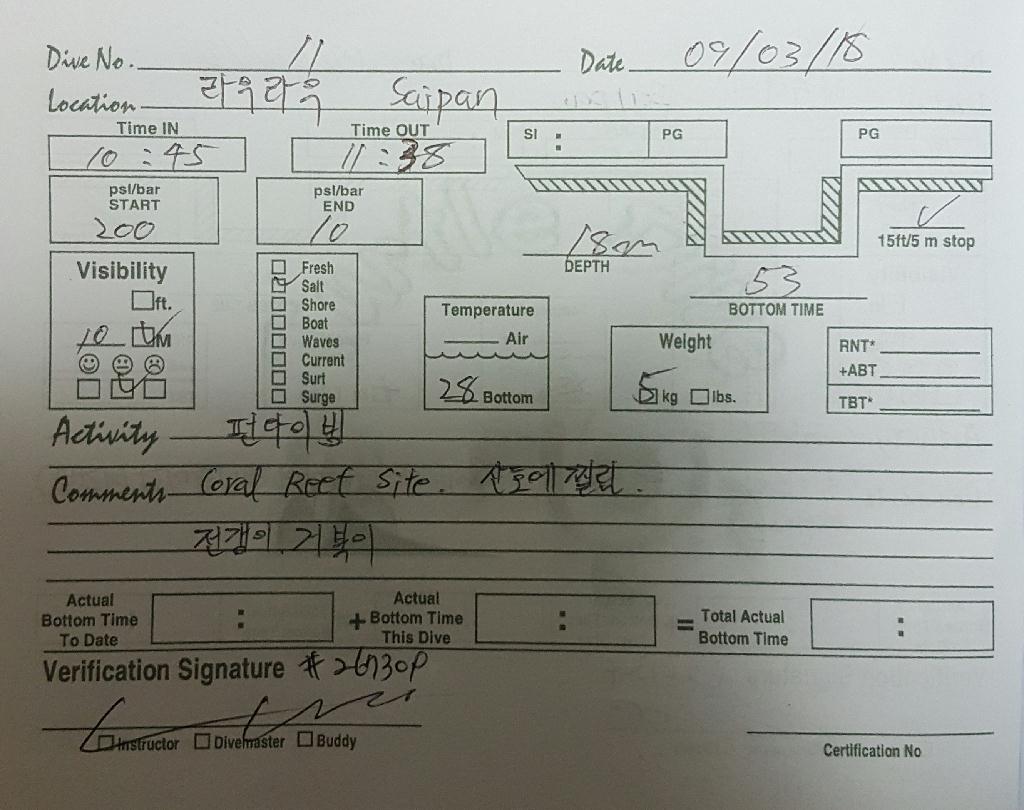 Dive No. 11 Date 09/03/18
Location 라우라우 Saipan
Time IN Time OUT SI : PG PG
10 : 45 11 : 38
psl/bar START 200 psl/bar END 10
18m DEPTH 15ft/5 m stop
53 BOTTOM TIME
Visibility
ft.
10 M
Fresh
Salt
Shore
Boat
Waves
Current
Surt
Surge
Temperature
Air
28 Bottom
Weight
5 kg lbs.
RNT*
+ABT
TBT*
Activity 펀다이빙
Comments Coral Reef Site. 산호에 찔림.
전갱이. 거북이
Actual Bottom Time To Date : + Actual Bottom Time This Dive : = Total Actual Bottom Time :
Verification Signature # 26730P
Instructor Divemaster Buddy
Certification No